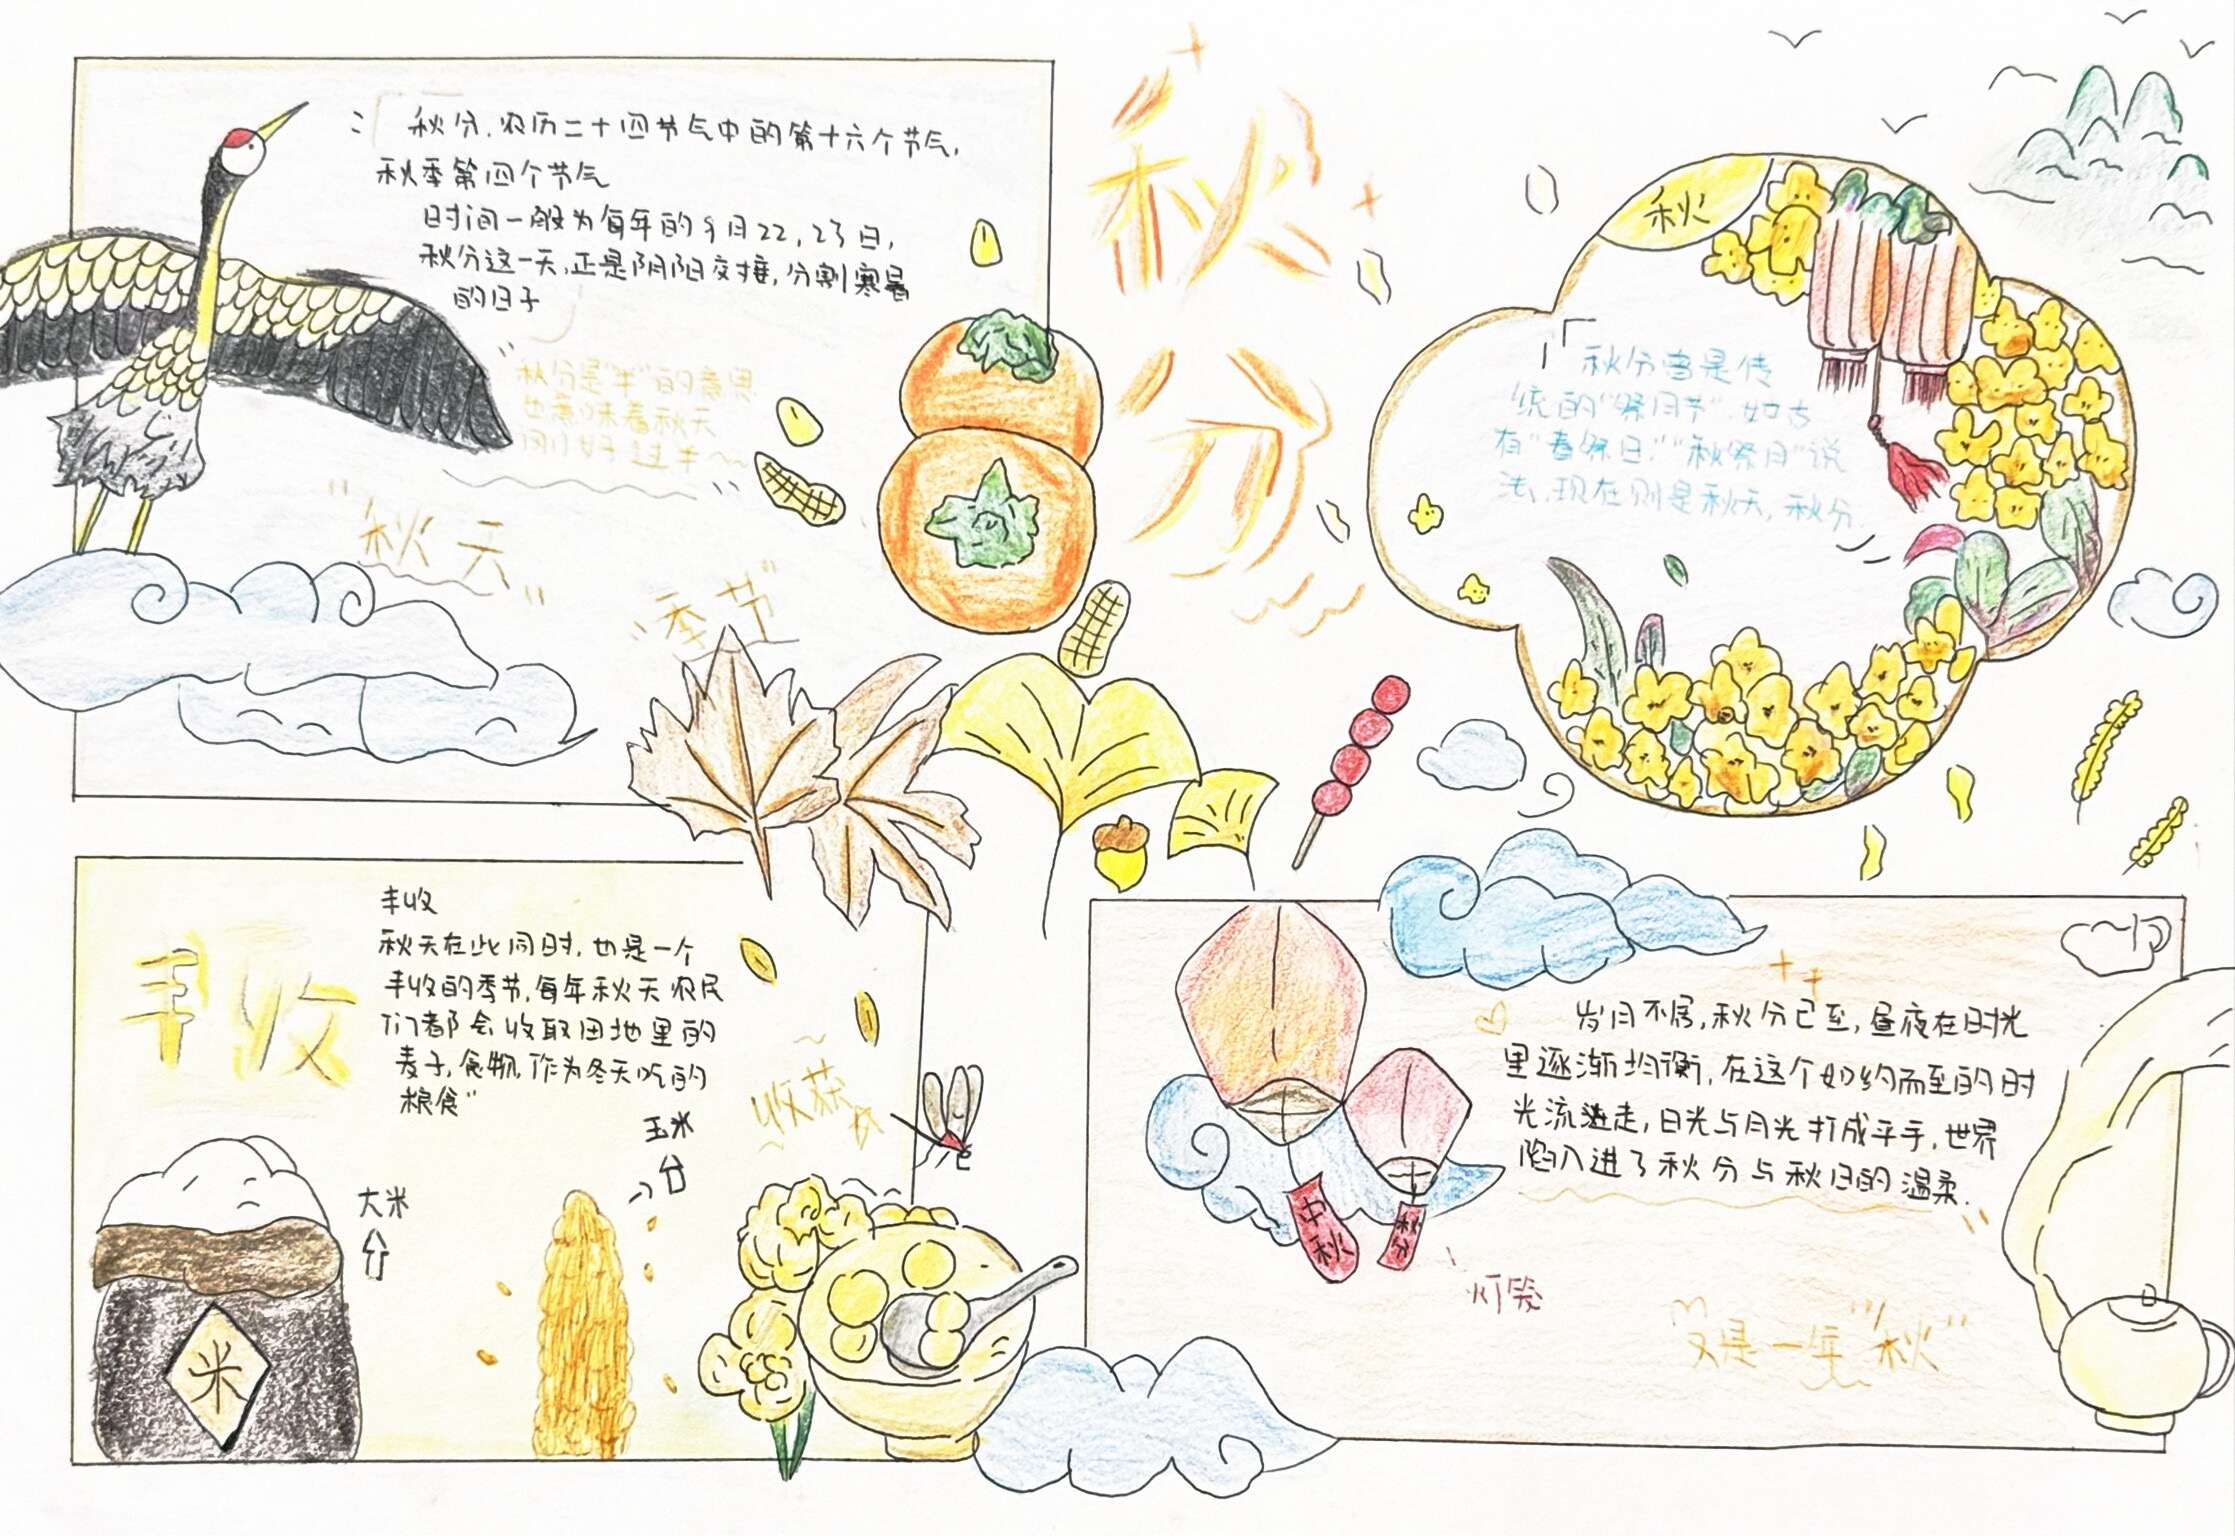 秋分
秋分，农历二十四节气中的第十六个节气，
秋季第四个节气
时间一般为每年的9月22，23日，
秋分这一天，正是阴阳交接，分割寒暑
的日子
秋分是"半"的意思
也意味着秋天
刚好过半～
"秋天"
"季节"
秋
秋分曾是传
统的"祭月节"，如古
有"春祭日""秋祭月"说
法，现在则是秋天，秋分
丰收
丰收
秋天在此同时，也是一个
丰收的季节，每年秋天农民
们都会收取田地里的
麦子，食物，作为冬天吃的
粮食"
玉米
大米
收获
米
岁月不居，秋分已至，昼夜在时光
里逐渐均衡，在这个如约而至的时
光流逝走，日光与月光打成平手，世界
陷入进了秋分与秋归的温柔.
中秋
秋分
灯笼
又是一年"秋"